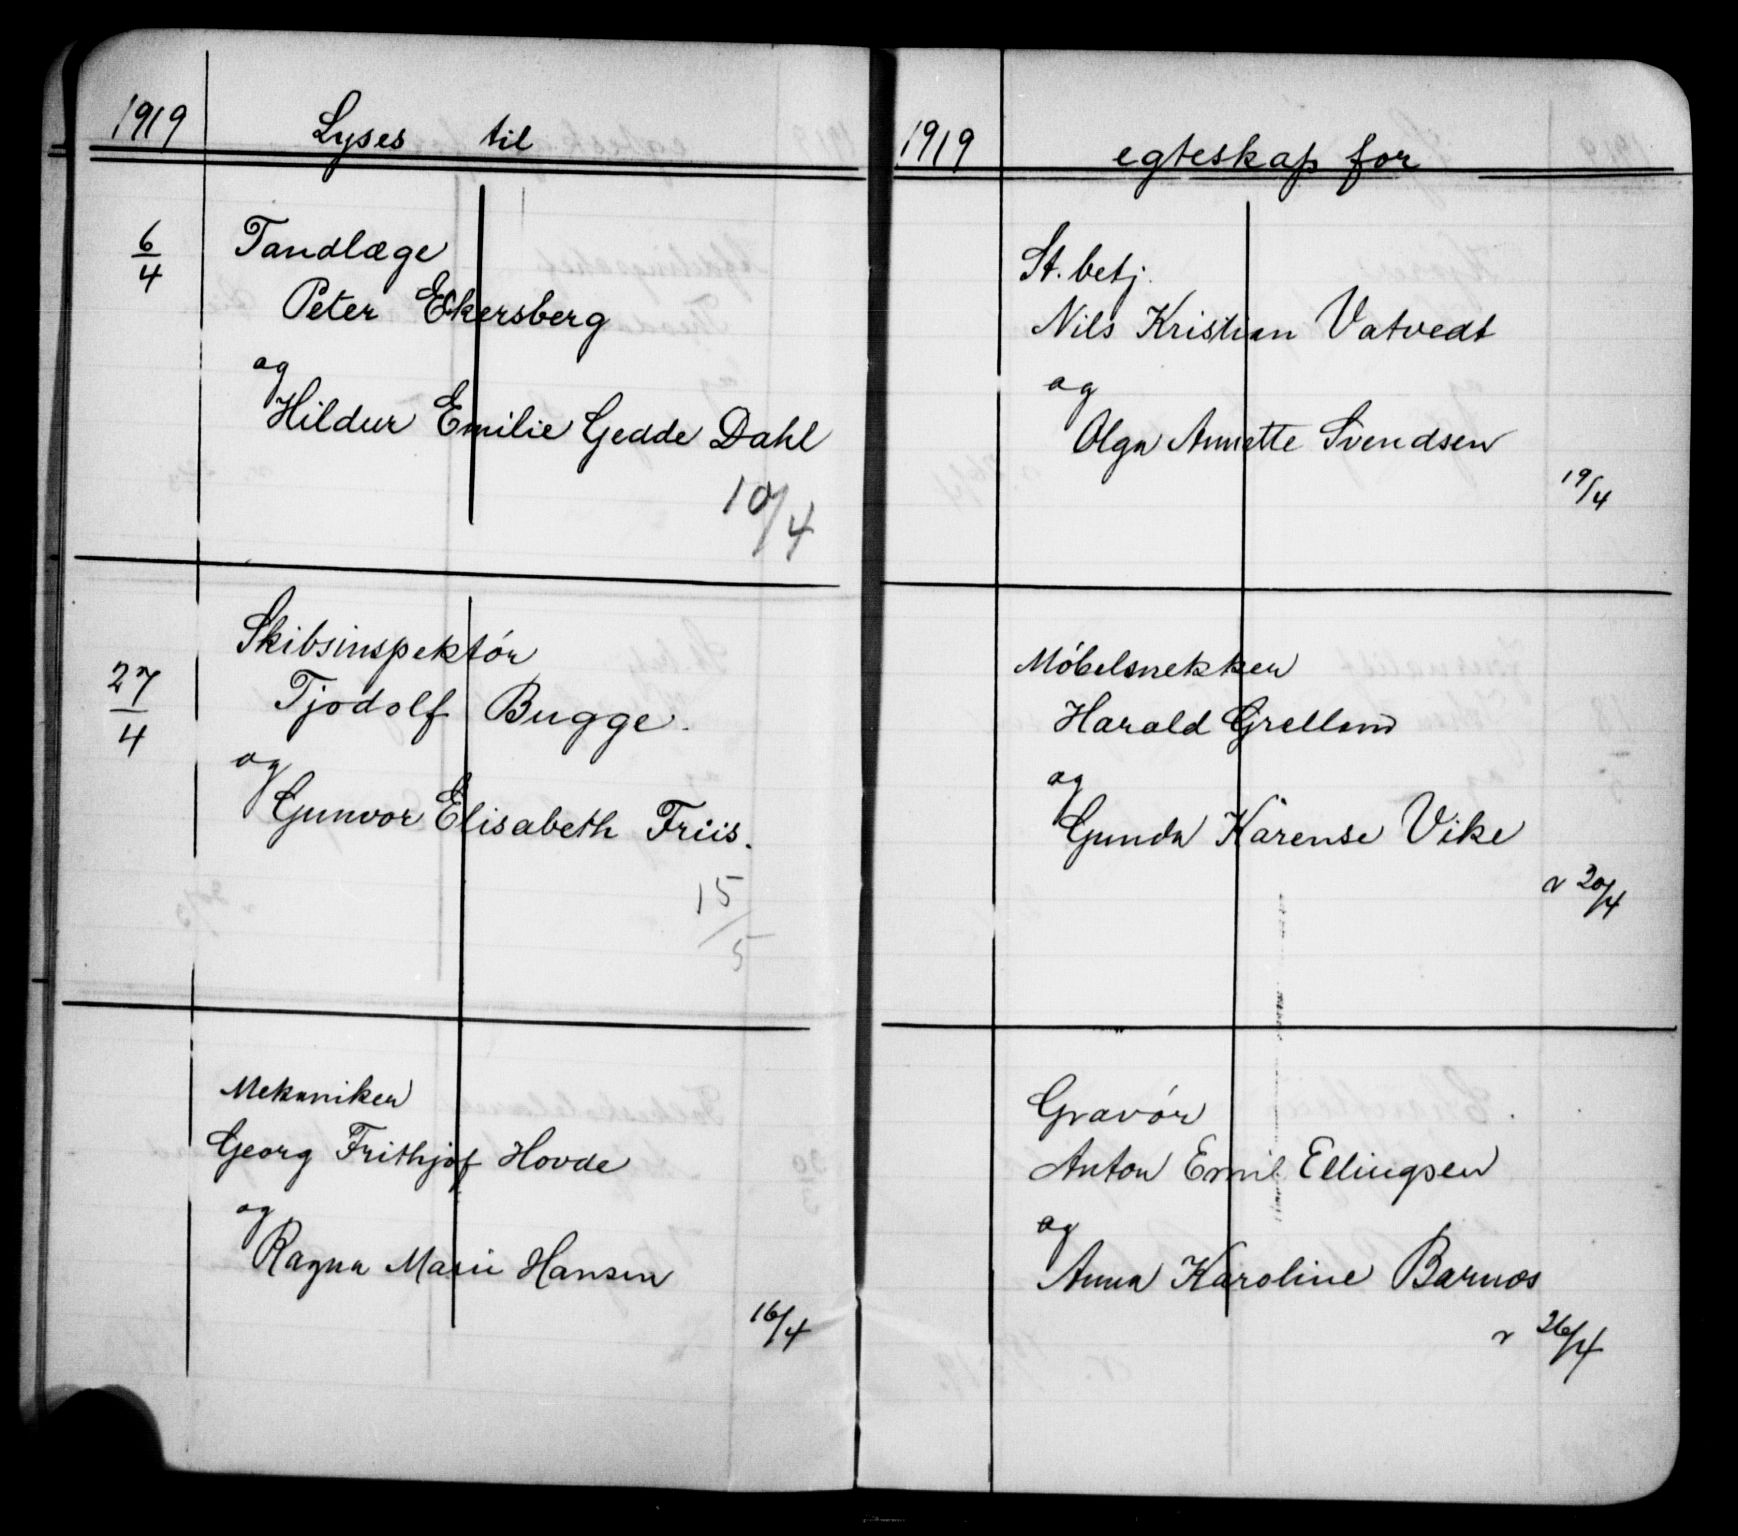 1919 Lyses til
6/4
Tandlæge
Peter Ekersberg
og
Hildur Emilie Gedde Dahl
10/4
27/4
Skibsinspektör
Tjodolf Bugge.
og
Gunvor Elisabeth Friis.
15/5
Mekaniker
Georg Frithjof Hovde
og
Ragna Marie Hansen
16/4
1919 egteskap for
St. betj.
Nils Kristian Vatvedt
og
Olga Annette Svendsen
19/4
Möbelsnekker
Harald Grelland
og
Gunda Karense Vike
v 20/4
Gravör
Anton Emil Ellingsen
og
Anna Karoline Barnos
v 26/4